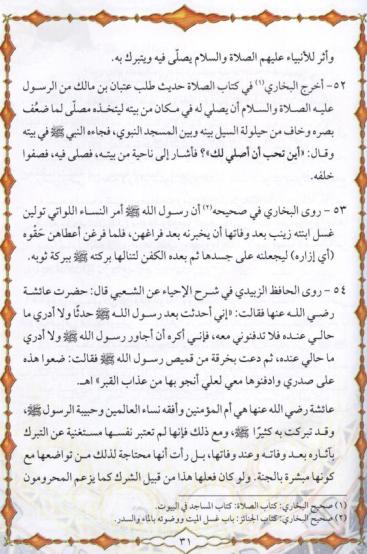 وأثر للأنبياء عليهم الصلاة والسلام يصلّى فيه ويتبرك به.
٥٢- أخرج البخاري(١) في كتاب الصلاة حديث طلب عتبان بن مالك من الرسول
عليه الصلاة والسلام أن يصلي له في مكان من بيته ليتخذه مصلّى لما ضعُف
بصره وخاف من حيلولة السيل بينه وبين المسجد النبوي، فجاءه النبي ﷺ في بيته
وقال: «أين تحب أن أصلي لك»؟ فأشار إلى ناحية من بيته، فصلى فيه، فصفوا
خلفه.
٥٣- روى البخاري في صحيحه(٢) أن رسول الله ﷺ أمر النساء اللواتي تولين
غسل ابنته زينب بعد وفاتها أن يخبرنه بعد فراغهن، فلما فرغن أعطاهن حَقْوه
(أي إزاره) ليجعلنه على جسدها ثم بعده الكفن لتنالها بركته ﷺ ببركة ثوبه.
٥٤- روى الحافظ الزبيدي في شرح الإحياء عن الشعبي قال: حضرت عائشة
رضي الله عنها فقالت: «إني أحدثت بعد رسول الله ﷺ حدثًا ولا أدري ما
حالي عنده فلا تدفنوني معه، فإني أكره أن أجاور رسول الله ﷺ ولا أدري
ما حالي عنده، ثم دعت بخرقة من قميص رسول الله ﷺ فقالت: ضعوا هذه
على صدري وادفنوها معي لعلي أنجو بها من عذاب القبر» اهـ.
عائشة رضي الله عنها هي أم المؤمنين وأفقه نساء العالمين وحبيبة الرسول ﷺ،
وقد تبركت به كثيرًا ﷺ، ومع ذلك فإنها لم تعتبر نفسها مستغنية عن التبرك
بآثاره بعد وفاته وعند وفاتها، بل رأت أنها محتاجة لذلك من تواضعها مع
كونها مبشرة بالجنة. ولو كان فعلها هذا من قبيل الشرك كما يزعم المحرومون
(١) صحيح البخاري: كتاب الصلاة: كتاب المساجد في البيوت.
(٢) صحيح البخاري: كتاب الجنائز: باب غسل الميت ووضوئه بالماء والسدر.
٣١